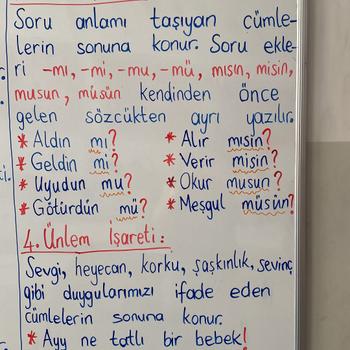 Soru anlamı taşıyan cümle-
lerin sonuna konur. Soru ekle-
ri -mı, -mi, -mu, -mü, mısın, misin,
musun, müsün kendinden önce
gelen sözcükten ayrı yazılır.
* Aldın mı? * Alır mısın?
* Geldin mi? * Verir misin?
* Uyudun mu? * Okur musun?
* Götürdün mü? * Meşgul müsün?
4. Ünlem İşareti:
Sevgi, heyecan, korku, şaşkınlık, sevinç
gibi duygularımızı ifade eden
cümlelerin sonuna konur.
* Ayy ne tatlı bir bebek!